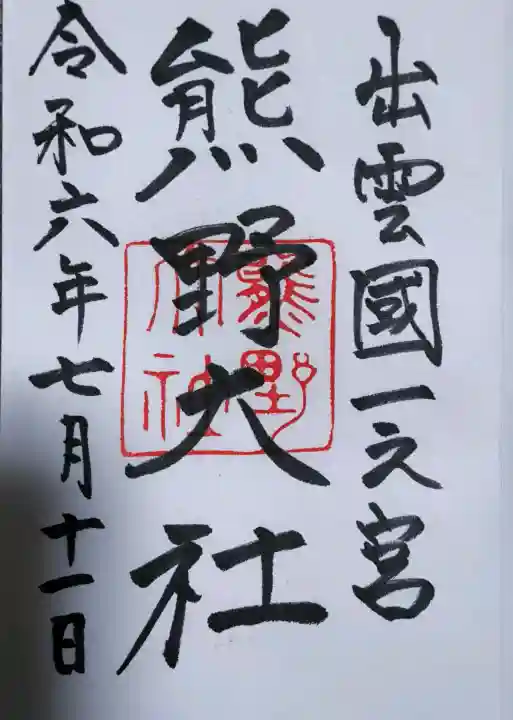 出雲國一之宮
熊野大社
熊野
大社
令和六年七月十一日